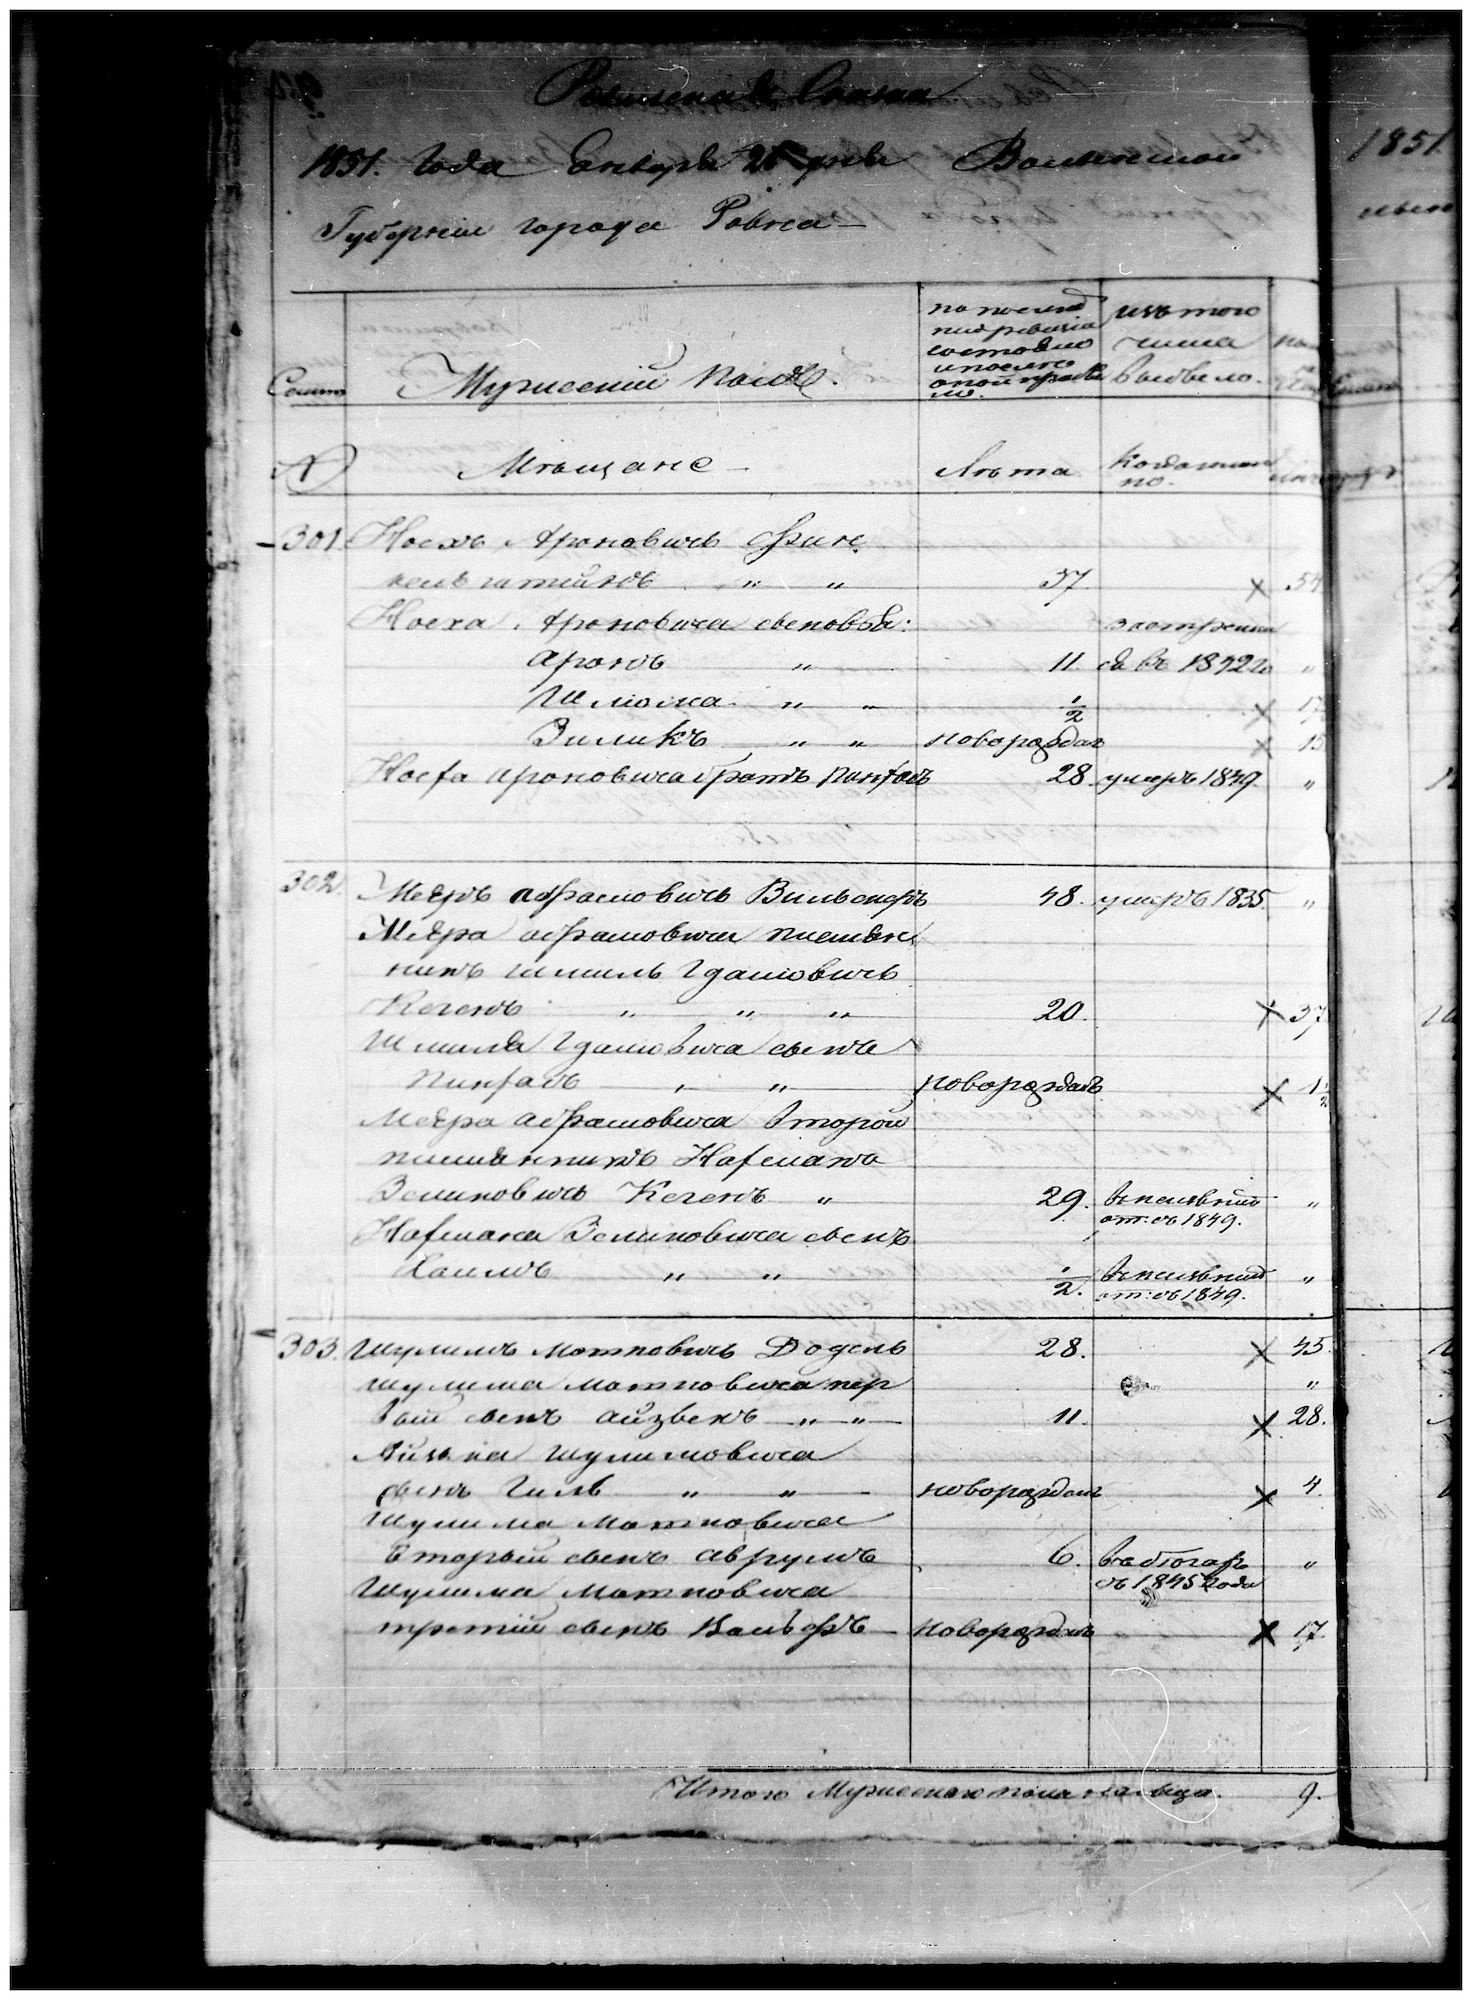 Ревизская Сказка
1851. Года Генваря 25 дня Волынской
Губернiи города Ровна
Семьи Мужескiй полъ. по послед
ней ревизiи
состояло
и после
оной прибы
ло. изъ того
числа
выбыло.
№ Мѣщане Лѣта Когда имен
но.
301. Носхъ Ароновичъ Финк
кельштейнъ " " 37. × 54
Носха Ароновича сыновья:
Аронъ " 11. въ 1842 го "
Шліома " " 1/2 × 17
Зиликъ " " новорожден × 15
Носха Ароновича братъ Пинхасъ 28. умеръ 1849. "
302. Мееръ Абрамовичъ Вильскеръ 48. умеръ 1835. "
Меера Абрамовича племян
никъ Шмиль Гдаловичъ
Кегенъ " " " 20. × 37
Шмиля Гдаловича сынъ
Пинхасъ " " новорожденъ × 1 1/2
Меера Абрамовича второй
племянникъ Нахманъ
Зеликовичъ Кегенъ " 29. съ 1849. "
Нахмана Зеликовича сынъ
Хаимъ " " 1/2. съ 1849. "
303. Шулимъ Мотковичъ Додель 28. × 45.
Шулима Мотковича пер "
вый сынъ Айзыкъ " " 11. × 28.
Айзыка Шулимовича
сынъ Гиль " " новорожден × 4.
Шулима Мотковича
вторый сынъ Аврумъ 6. въ бѣгахъ "
съ 1845 года
Шулима Мотковича
третiй сынъ Вольфъ новорожденъ × 17.
Итого Мужескаго пола на лицо. 9.
1851